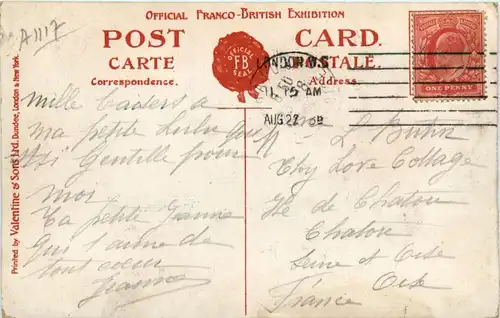 A 1117
OFFICIAL FRANCO-BRITISH EXHIBITION
POST CARD.
CARTE POSTALE.
Correspondence. Address.
OFFICIAL
FB
SEAL
LONDON W.S
11.15 AM
AUG 22 08
ONE PENNY
Printed by Valentine & Sons Ltd. Dundee, London & New York.
Mille baisers a
ma petite Lulu
si gentille pour
moi
Ta petite Jeanne
qui t'aime de
tout cœur
Jeanne
L
Thy Love Cottage
Ile de Chatou
Chatou
Seine et Oise
Oise
France